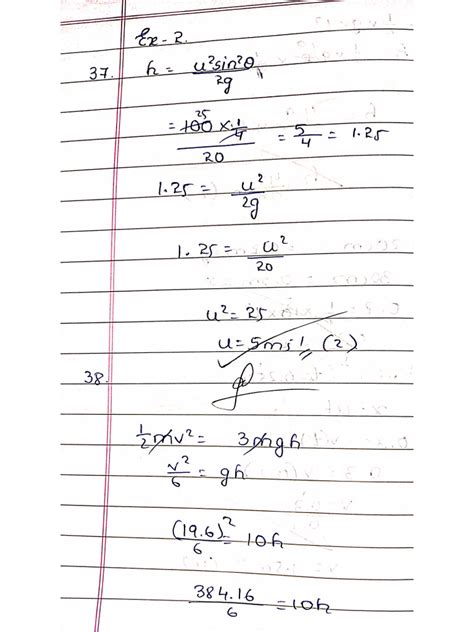 Ex-2.
37. h = u²sin²θ / 2g
= 25 100 × 1/4 / 20 = 5/4 = 1.25
1.25 = u² / 2g
1.25 = u² / 20
u² = 25
u = 5ms⁻¹, (2)
38.
1/2 mv² = 3mgh
v²/6 = gh
(19.6)²/6 = 10h
384.16/6 = 10h